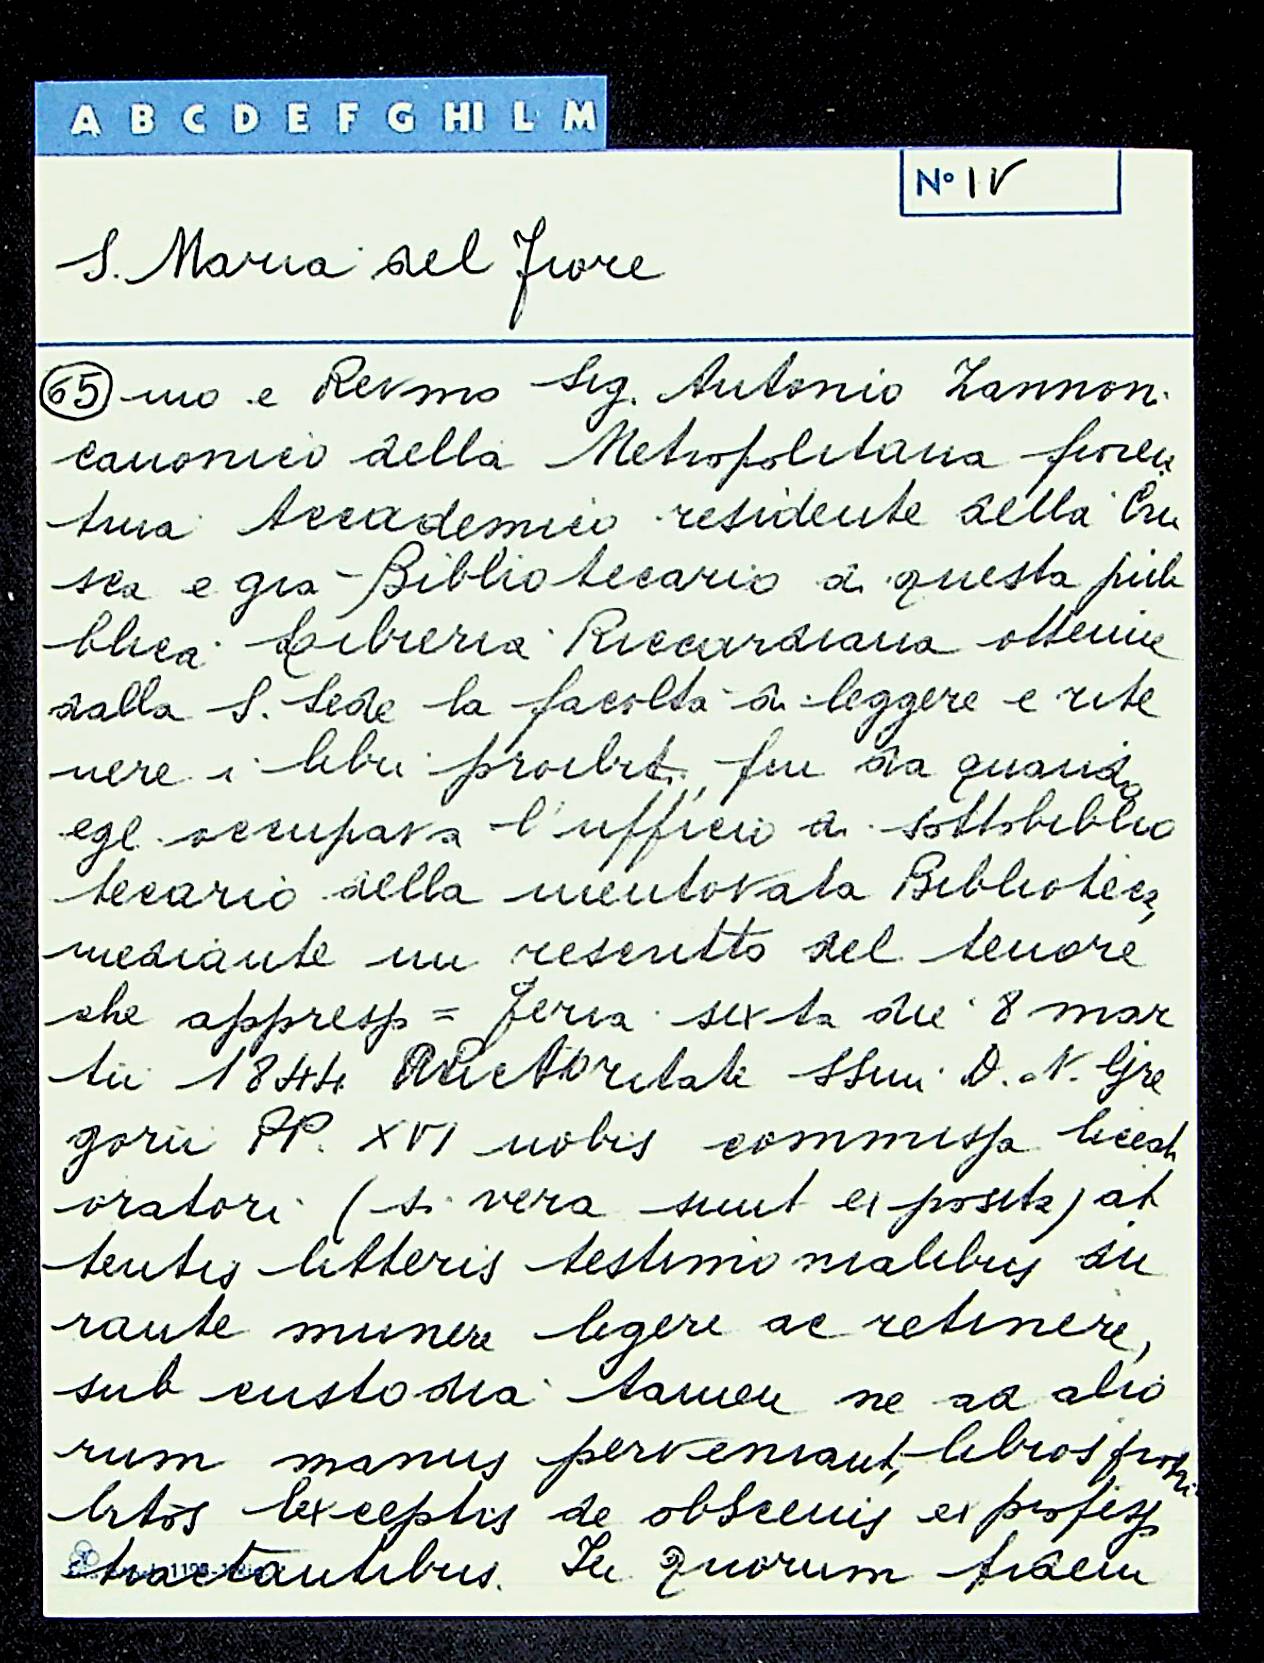 A B C D E F G HI L M
N° IV
S. Maria del Fiore
65 mo e Revmo Sig. Antonio Zannoni
canonico della Metropolitana fioren
tina Accademico residente della Cru
sca e già Bibliotecario di questa pub
blica Libreria Riccardiana ottenne
dalla S. Sede la facoltà di leggere e rite
nere i libri proibiti, fin da quando
egli occupava l'ufficio di sottobiblio
tecario della mentovata Biblioteca,
mediante un rescritto del tenore
che appresso = Feria sexta die 8 mar
tii 1844 Auctoritate SSmi D. N. Gre
gorii PP. XVI nobis commissa liceat
oratori (si vera sunt exposita) at
tentis litteris testimonialibus du
rante munere legere ac retinere,
sub custodia tamen ne ad alio
rum manus perveniant, libros prohi
bitos exceptis de obscenis ex professo
tractantibus. In quorum fidem